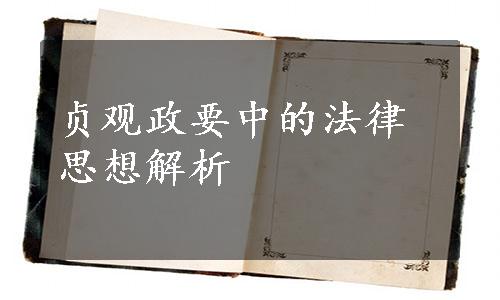 贞观政要中的法律
思想解析